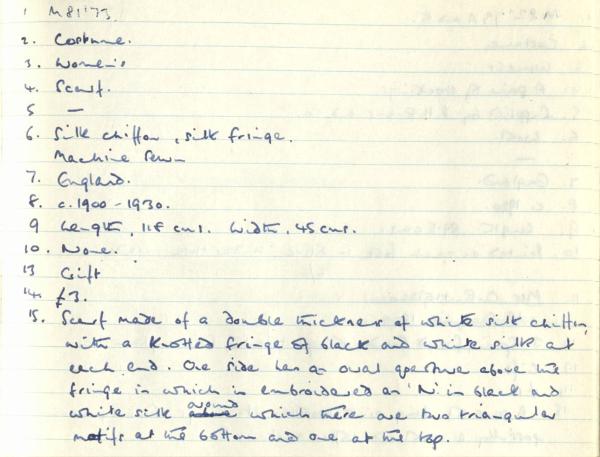 1 M81'73
2. Costume.
3. Women's
4. Scarf.
5 —
6. Silk chiffon, silk fringe.
Machine Sewn
7. England.
8. c.1900-1930.
9 Length, 118 cms. Width, 45 cms.
10. None.
13 Gift
14. £3.
15. Scarf made of a double thickness of white silk chiffon,
with a knotted fringe of black and white silk at
each end. One side has an oval aperture above the
fringe in which is embroidered an 'N' in black and
white silk around which there are two triangular
motifs at the bottom and one at the top.